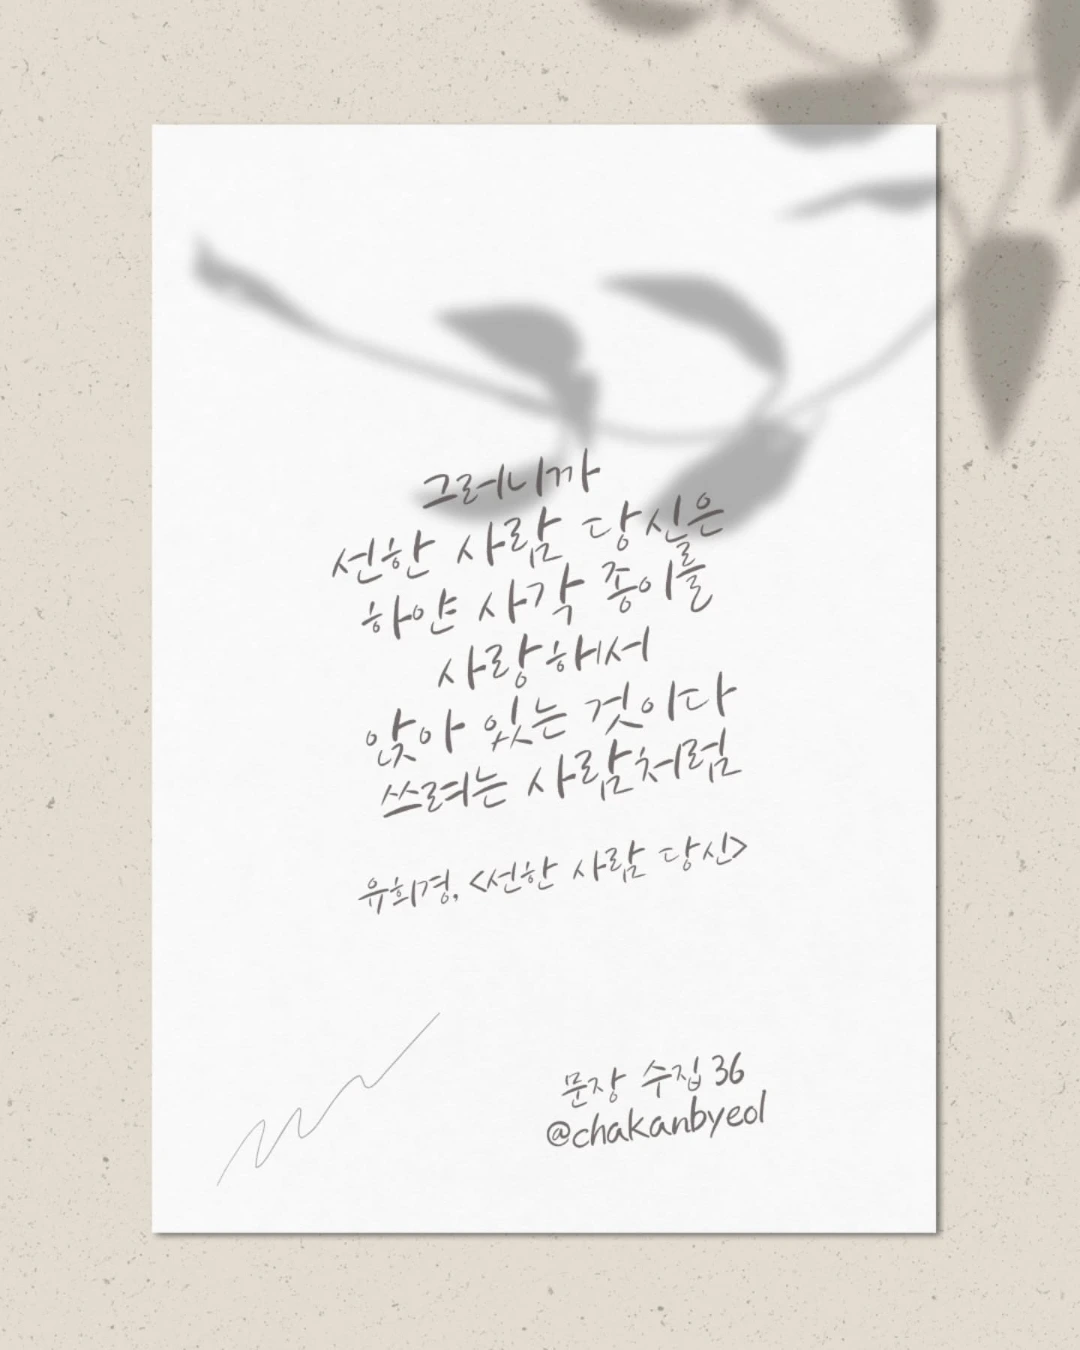 그러니까
선한 사람 당신은
하얀 사각 종이를
사랑해서
앉아 있는 것이다
쓰려는 사람처럼
유희경, <선한 사람 당신>
문장 수집 36
@chakanbyeol